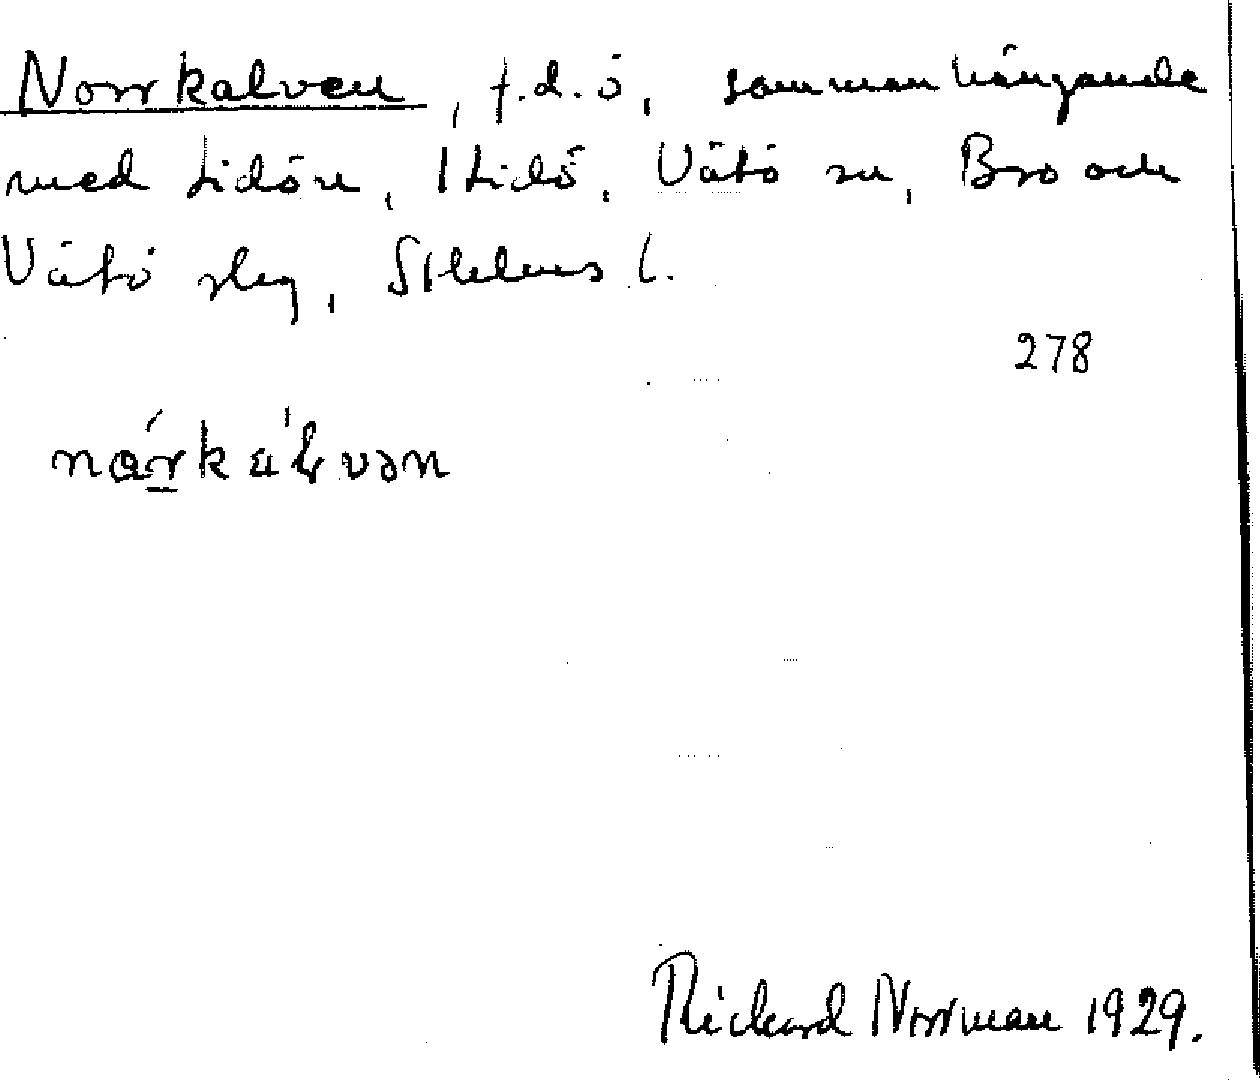 Norrkalven, f.d. ö, sammanhängande
med Lidön, 1 Lidö, Vätö sn, Bro och
Vätö slg, Sthlms l.
278
Rickard Norrman 1929.